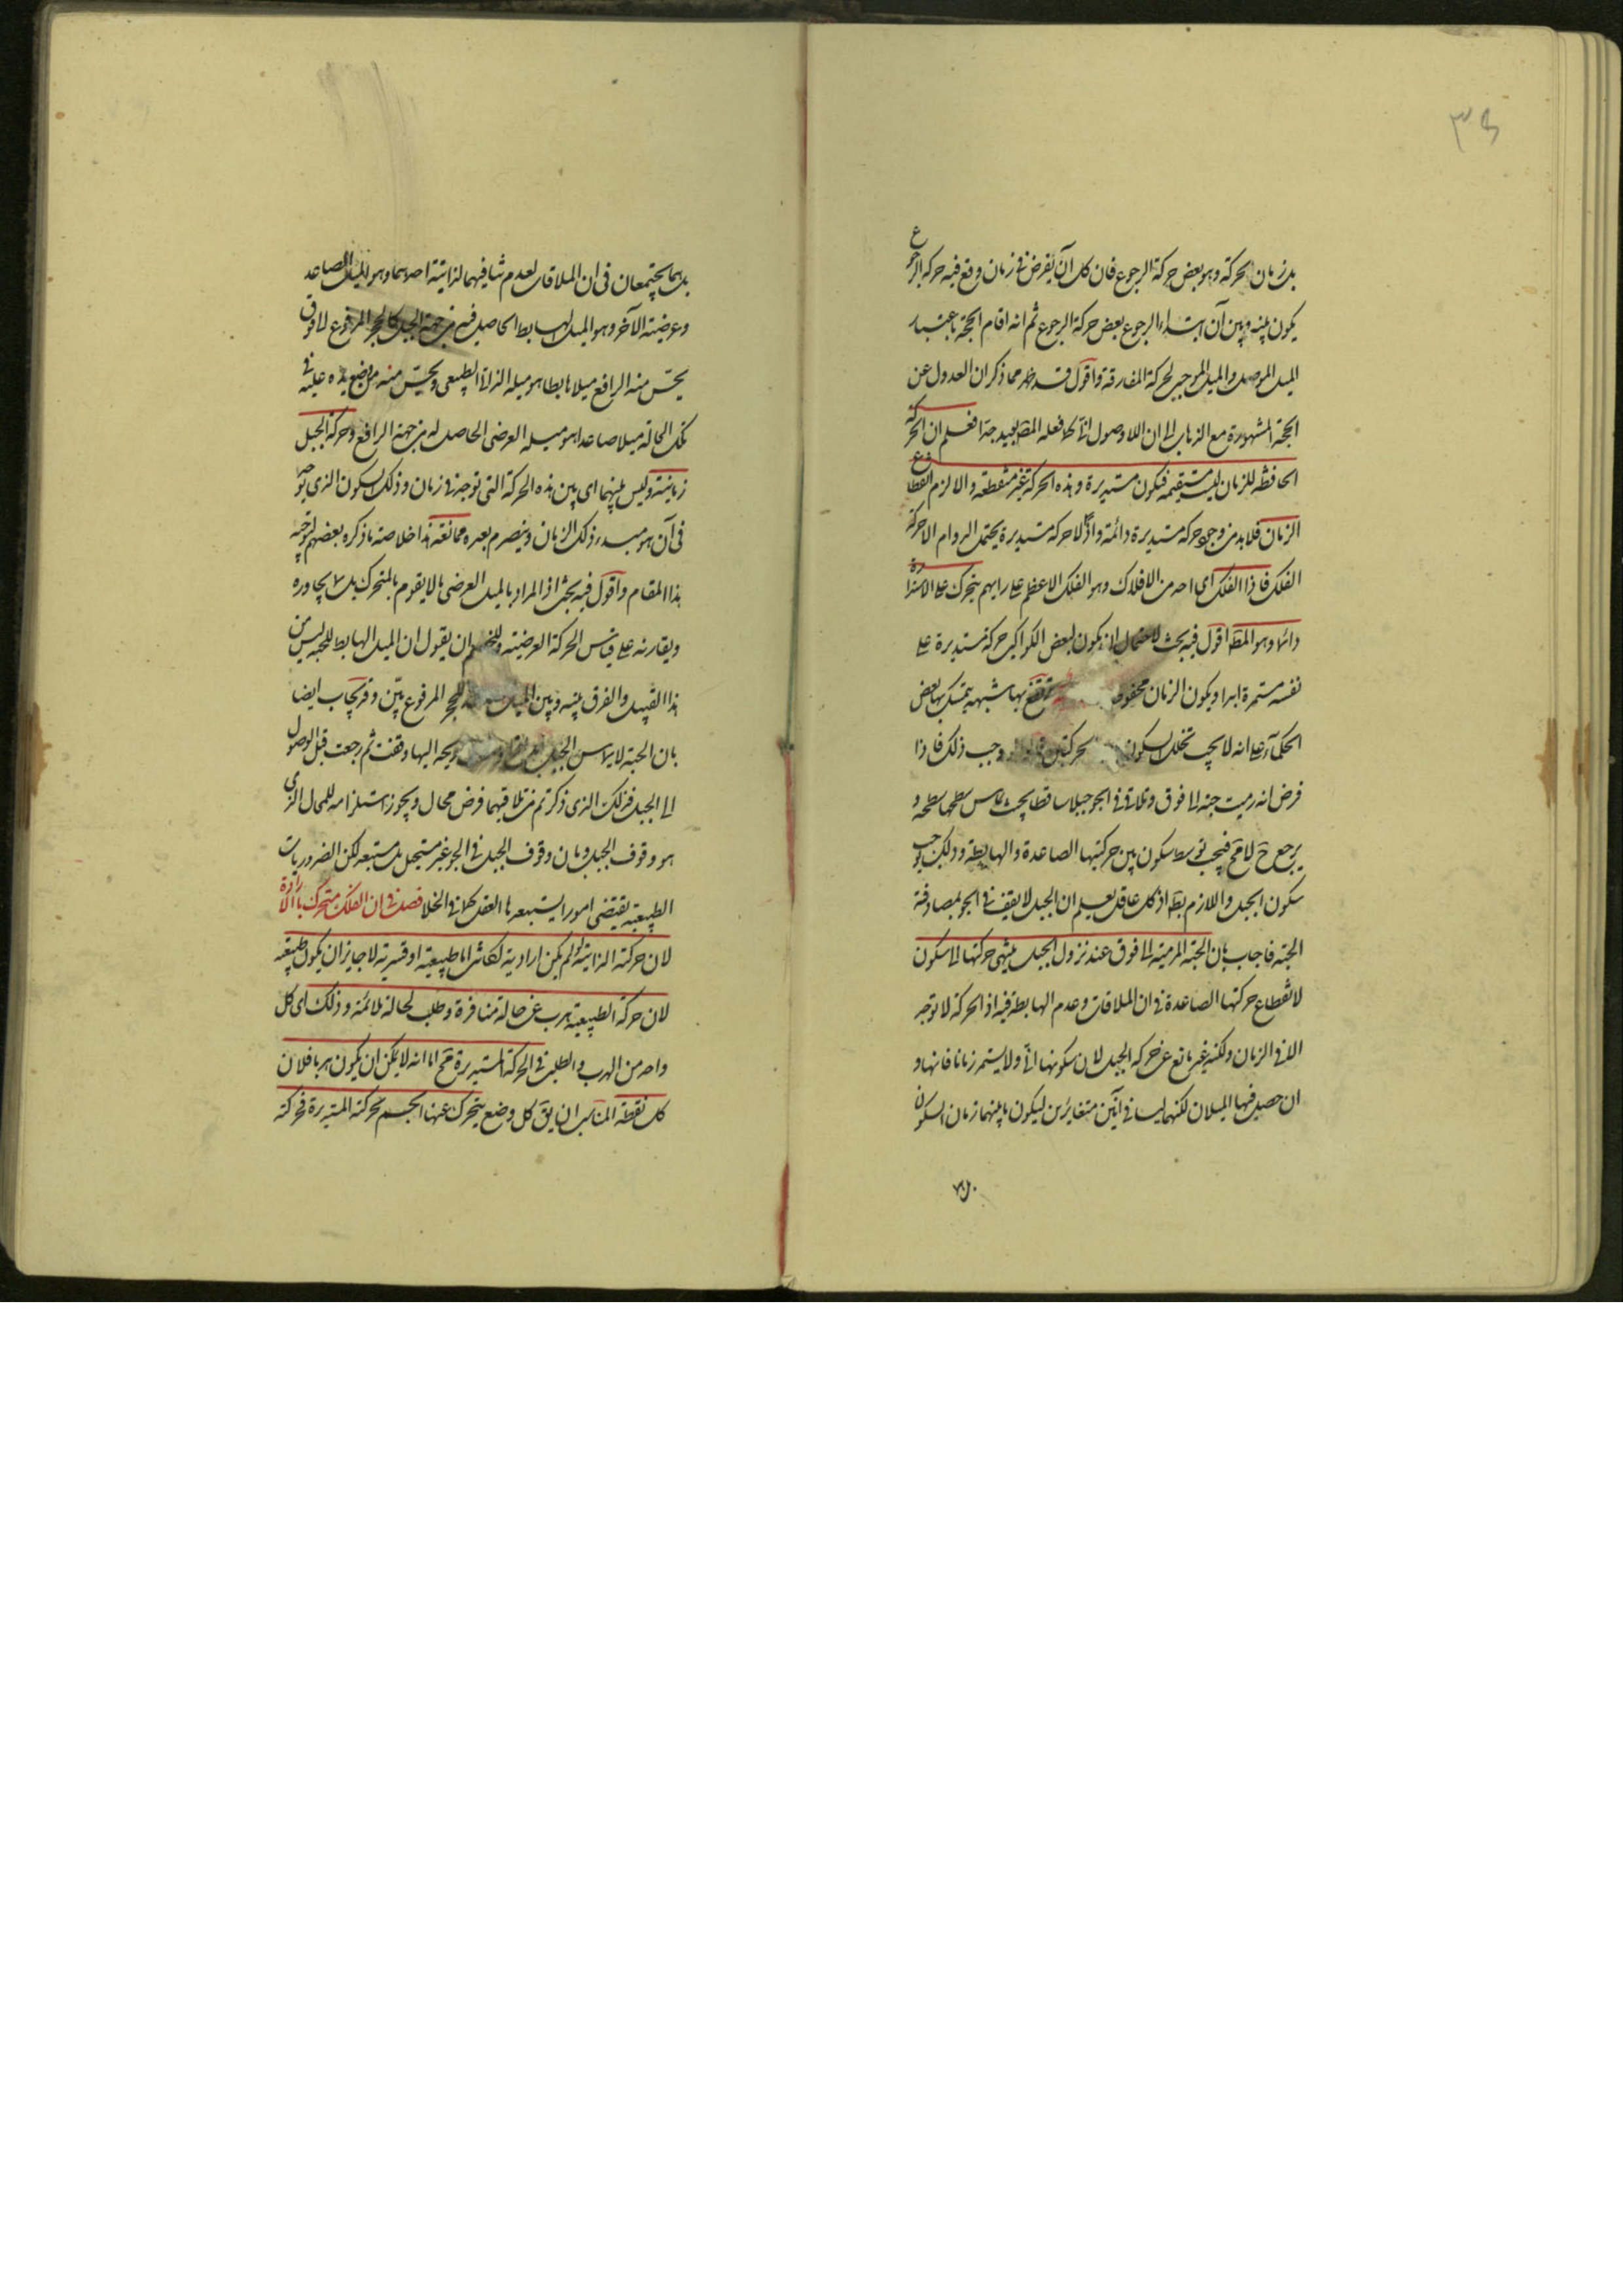 ٣٥
بل زمان الحركة وهو بعض حركة الرجوع فان كل آن يفرض فى زمان وقع فيه حركة الرجوع
يكون بينه وبين آن ابتداء الرجوع بعض حركة الرجوع ثم انه اقام الحجة باعتبار
الميل الموصل والميل الموجب لحركة المفارقة واقول قد ظهر مما ذكر ان العدول عن
الحجة المشهورة مع الذهاب الى ان اللاوصول انى كما فعله المص بعيد جدا فعلم ان الحركة
الحافظة للزمان ليست مستقيمة فتكون مستديرة وهذه الحركة غير منقطعة والا لزم انقطاع
الزمان فلابد من وجود حركة مستديرة دائمة واذ لا حركة مستديرة يحتمل الدوام الا حركة
الفلك فاذا الفلك اى احد من الافلاك وهو الفلك الاعظم على رايهم يتحرك على الاستدارة
دائما وهو المط اقول فيه بحث لاحتمال ان يكون لبعض الكواكب حركة مستديرة على
نفسه مستمرة ابدا ويكون الزمان محفوظا تنقض بها شبهه يتمسك بها بعض
الحكماء على انه لا يجب تخلل السكون حركتين وجب ذلك فاذا
فرض انه رميت حبة الى فوق وتلاقى فى الجو جبلا ساقطا بحيث يماس سطحها سطحه و
يرجع ح لا مح فيجب توسط سكون بين حركتيها الصاعدة والهابطة وذلك يوجب
سكون الجبل واللازم بط اذ كل عاقل يعلم ان الجبل لا يقف فى الجو بمصادفة
الحبة فاجاب بان الحبة المرمية الى فوق عند نزول الجبل ينتهى حركتها الى سكون
لانقطاع حركتها الصاعدة فى ان الملاقات وعدم الهابطة فيه اذ الحركة لا توجد
الا فى الزمان ولكنه غير مانع عن حركة الجبل لان سكونها انى ولا يستمر زمانا فانها و
ان حصل فيها الميلان لكنهما ليسا فى آنين متغايرين ليكون ما بينهما زمان السكون
بل
بل هما يجتمعان فى ان الملاقات لعدم تنافيهما لذاتية احدهما وهو الميل الصاعد
وعرضية الآخر وهو الميل الهابط الحاصل فيه من جهة الجبل كالحجر المرفوع الى فوق
يحس منه الرافع ميلا هابطا هو ميله الذاتى الطبيعى ويحس منه من يضع يده عليه فى
تلك الحالة ميلا صاعدا هو ميله العرضى الحاصل له من جهة الرافع وحركة الجبل
زمانية وليس بينهما اى بين هذه الحركة التى توجد فى زمان وذلك السكون الذى يوجد
فى آن هو مبدء ذلك الزمان وينصرم بعده ممانعة هذا خلاصة ما ذكره بعضهم لتوجيه
هذا المقام واقول فيه بحث اذ المراد بالميل العرضى ما لا يقوم بالمتحرك بل بما يجاوره
ويقارنه على قياس الحركة العرضية وللخصم ان يقول ان الميل الهابط للحبة ليس من
هذا القبيل والفرق بينه وبين الميل للحجر المرفوع بين وقد يجاب ايضا
بان الحبة لا يماس الجبل ريحه اليها وقفت ثم رجعت قبل الوصول
الى الجبل فذلك الذى ذكرتم من تلاقيهما فرض محال ويجوز استلزامه للمحال الذى
هو وقوف الجبل وبان وقوف الجبل فى الجو غير مستحيل بل مستبعد لكن الضروريات
الطبيعية يقتضى امورا يستبعدها العقل كما فى الخلا فصل فى ان الفلك متحرك بالارادة
لان حركته الذاتية لو لم يكن ارادية لكانت اما طبيعية او قسرية لا جايز ان يكون طبيعية
لان حركة الطبيعية هرب عن حالة منافرة وطلب لحالة ملائمة وذلك اى كل
واحد من الهرب والطلب فى الحركة المستديرة مح اما انه لا يمكن ان يكون هربا فلان
كل نقطة المناسب ان يق كل وضع يتحرك عنها الجسم بحركته المستديرة فحركته